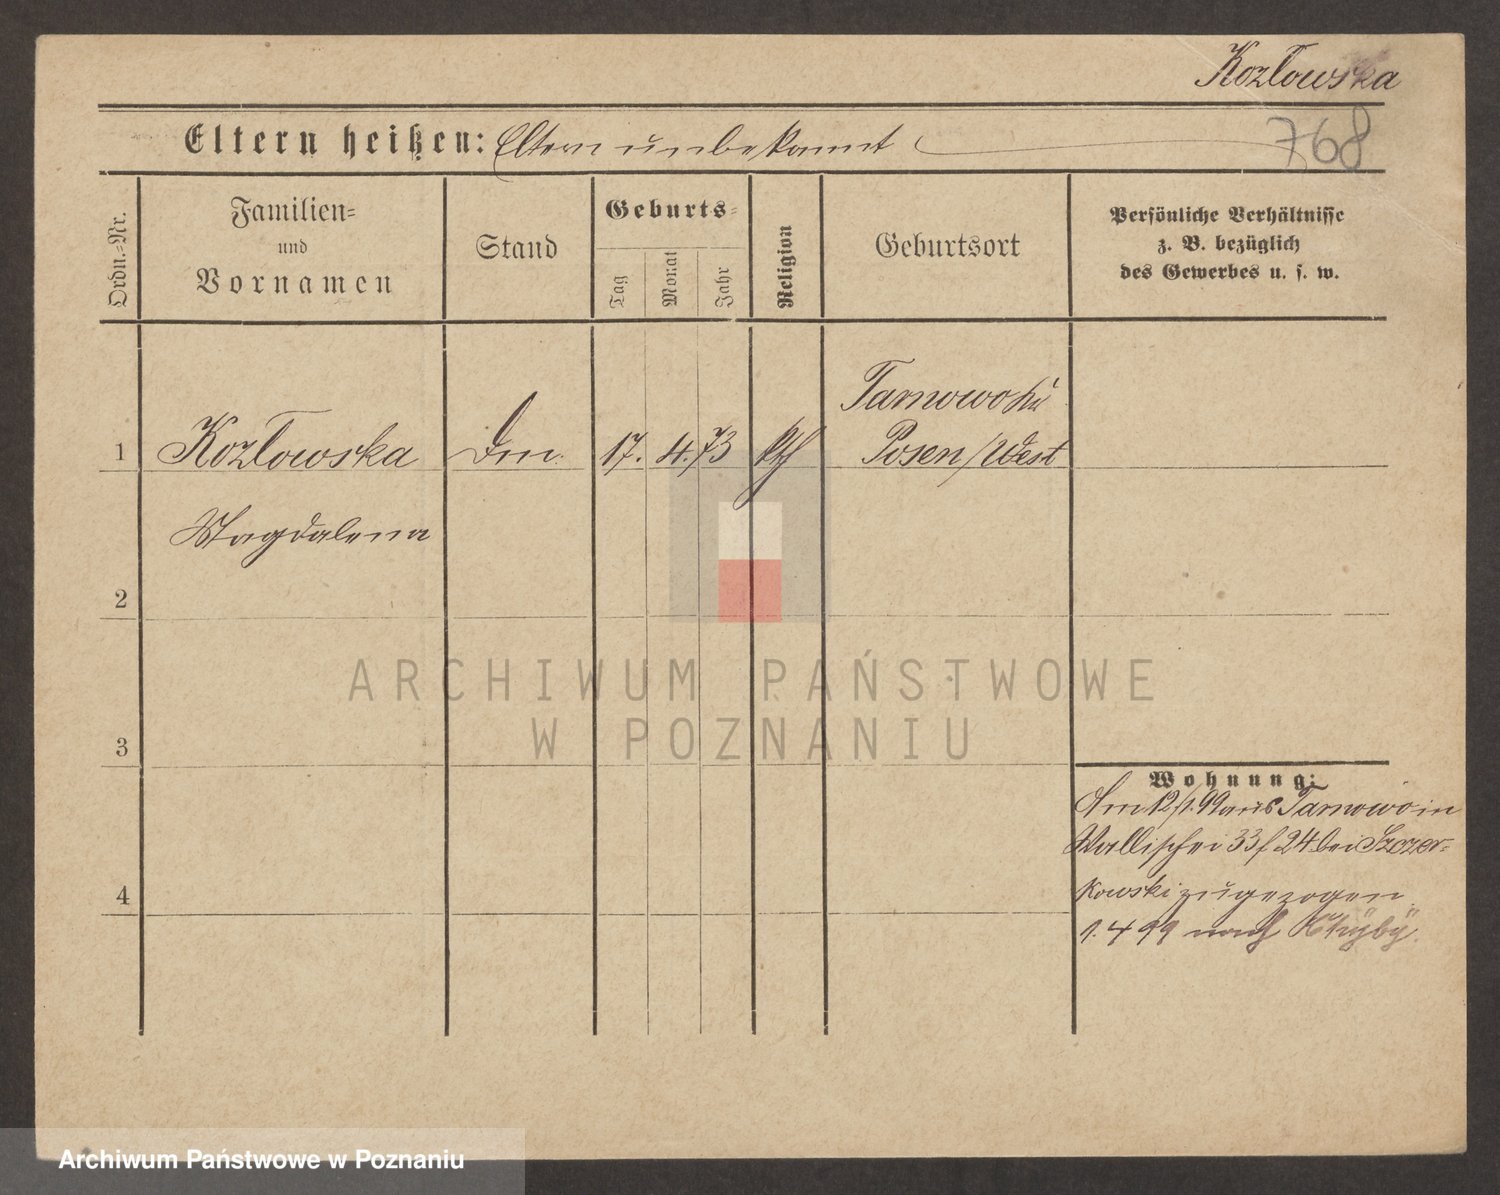 Kozłowska
768
Eltern heißen: Eltern unbekannt
Ordn.-Nr.
Familien-
und
Vornamen
Stand
Geburts-
Tag
Monat
Jahr
Religion
Geburtsort
Persönliche Verhältnisse
z. B. bezüglich
des Gewerbes u. s. w.
1
Kozłowska
17. 4. 73
Kth
Tarnowo
Posen/West
Magdalena
2
3
4
Wohnung:
Am 12/1. 99 aus Tarnowo in
Wallischei 33 24 bei Szczer-
kowski zugezogen
1. 4 99 nach
ARCHIWUM PAŃSTWOWE
W POZNANIU
Archiwum Państwowe w Poznaniu